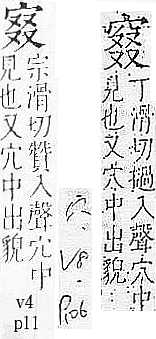 窡
宗滑切贊入聲穴中
見也又穴中出貌
v4
p11
窡
丁滑切撾入聲穴中
見也又穴中出貌
穴.V8.
P106